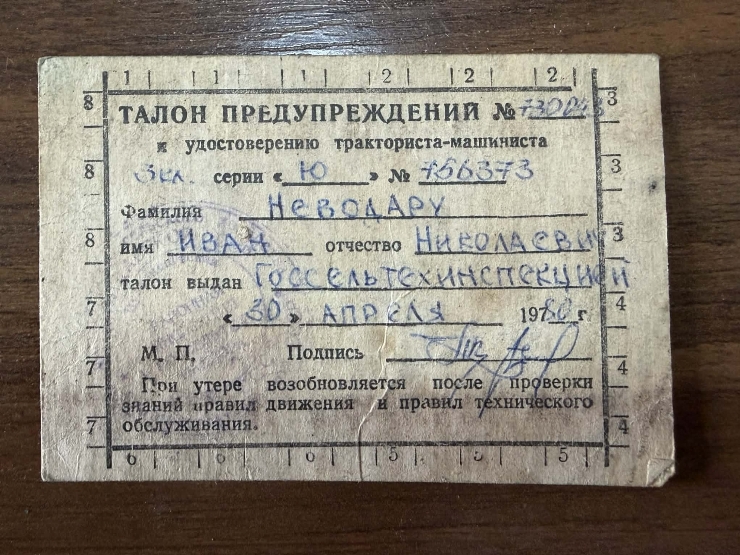 1 1 1 2 2 2
ТАЛОН ПРЕДУПРЕЖДЕНИЙ №
к удостоверению тракториста-машиниста
3 кл. серии «Ю» № 156373
Фамилия НЕВОДАРУ
имя ИВАН отчество НИКОЛАЕВИЧ
талон выдан Госсельтехинспекцией
«30» АПРЕЛЯ 1980 г
М. П. Подпись
При утере возобновляется после проверки
знаний правил движения и правил технического
обслуживания.
8 8 8 7 7 7
3 3 3 4 4 4
6 6 5 5